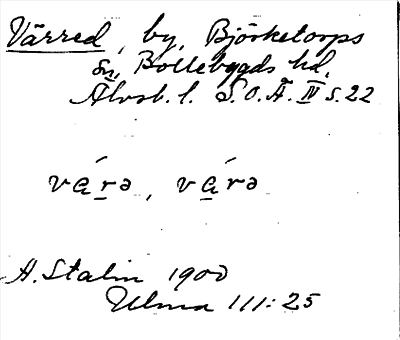 Värred, by, Björketorps
sn, Bollebygds hd,
Älvsb. l. S.O.Ä. IV s. 22
vá̱rə, vá̱rə
A. Stalin 1900
Ulma 111:25